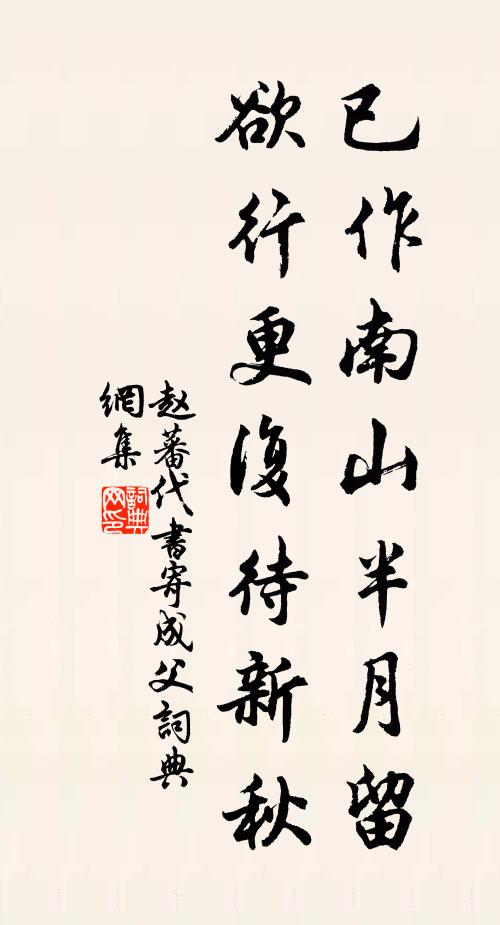 已作南山半月留
欲行更復待新秋
赵蕃代書寄成父詞典
網集
詞典網印